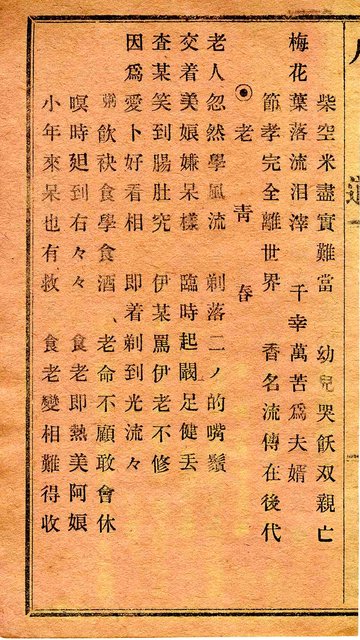 柴空米盡實難當　幼兒哭飫双親亡
梅花葉落流泪滓　千幸萬苦爲夫婿
節孝完全離世界　香名流傳在後代
◉老　青　春
老人忽然學風流　剃落二ノ的嘴鬚
交着美娘嫌呆樣　臨時起闘足健丢
査某笑到腸肚究　伊某罵伊老不修
因爲愛卜好看相　即着剃到光流々
飲袂食學食酒、老命不顧敢會休
暝時廻到右々々　食老即熱美阿娘
小年來呆也有救　食老變相難得收